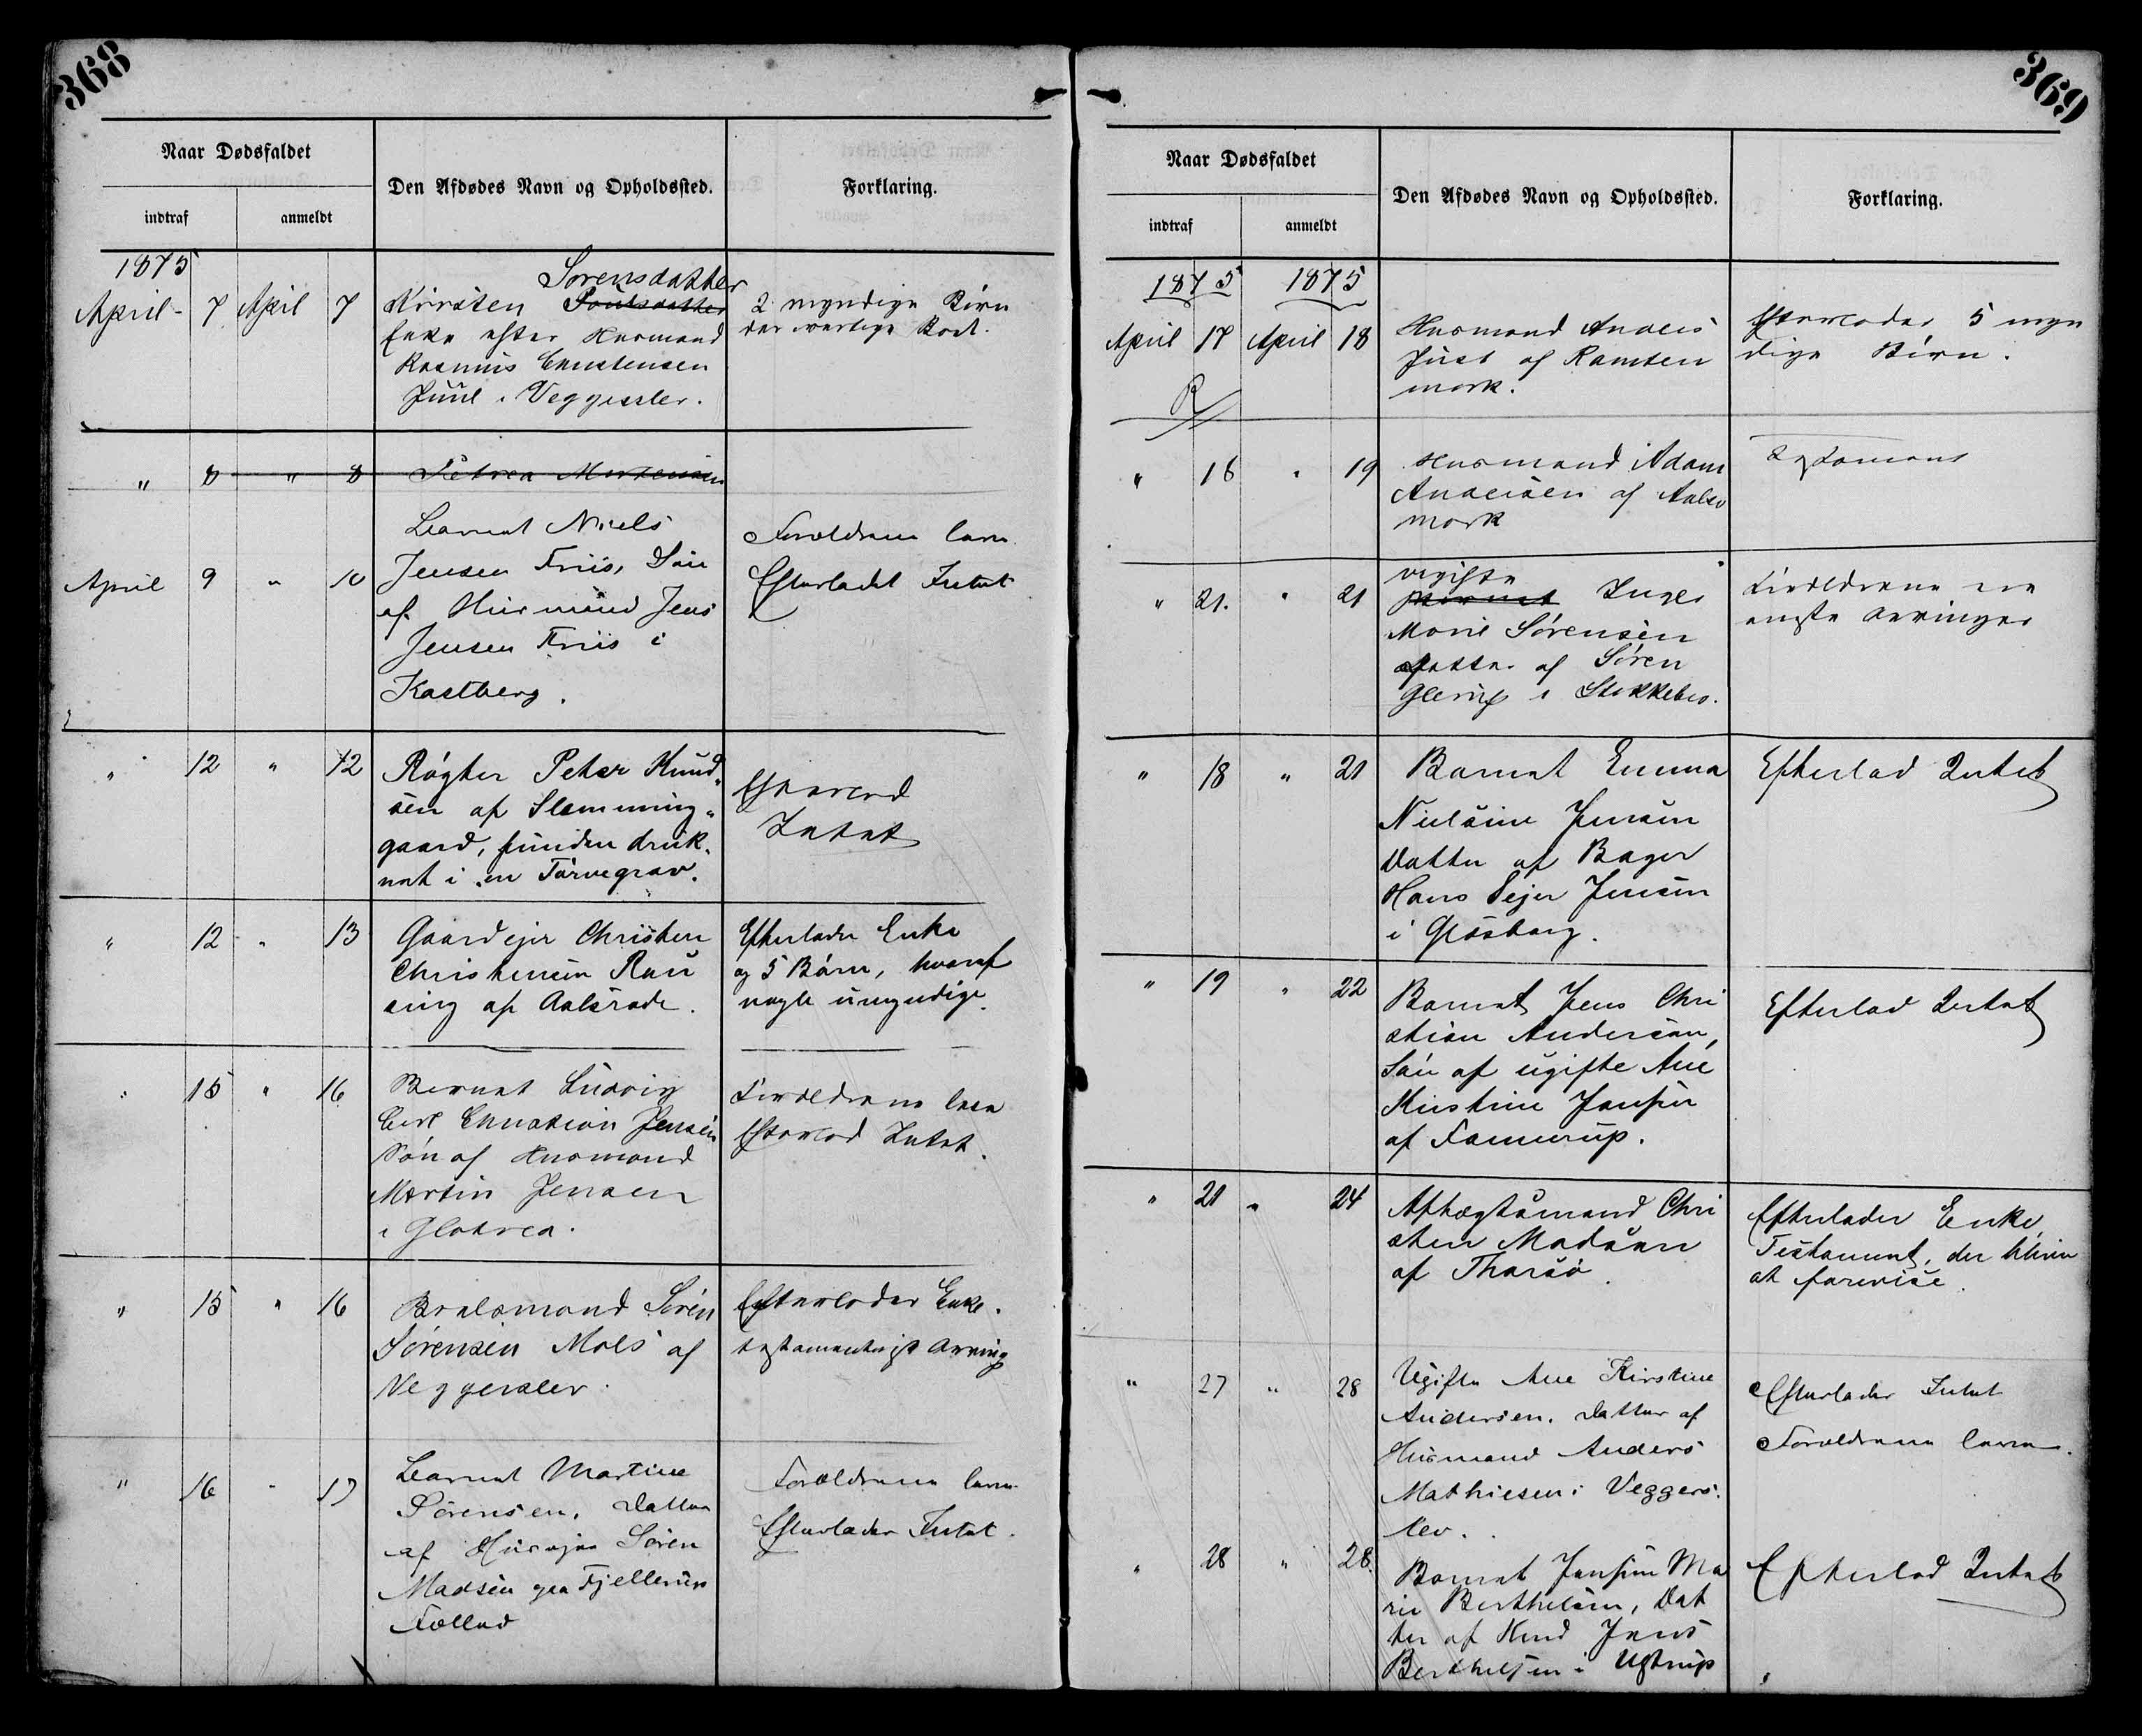 368
Naar Dødsfaldet
indtraf
anmeldt
Den Afdødes Navn og Opholdssted.
Forklaring.
1875
April 7 April 7
Sørensdatter
Kirsten Poulsdatter
Enke efter Husmand
Rasmus Christensen
Juul i Veggerslev.
2 myndige Børn
" 8 " 8
Petrea Mortensen
April 9 " 10
Barnet Niels
Jensen Friis, Søn
af Huusmand Jens
Jensen Friis i
Kastberg.
Forældrene leve
Efterladt Intet
" 12 " 12
Røgter Peter Knud-
sen af Slemming-
gaard, funden druk-
net i en Tørvegrav.
Efterlod
Intet
" 12 " 13
Gaardejer Christen
Christensen Rou
sing af Aalsrode.
Efterlader Enke
og 5 Børn, hvoraf
nogle umyndige.
" 15 " 16
Barnet Ludvig
Carl Christian Jensen
Søn af Husmand
Martin Jensen
i Glatved.
Forældrene leve
Efterlod Intet.
" 15 " 16
Søren
Sørensen Mols af
Veggerslev.
Efterlader Enke.
testamentarisk Arving
" 16 " 17
Barnet Martine
Sørensen, Datter
af Huusejer Søren
Madsen paa Fjellerup
Fælled
Forældrene leve
Efterlader Intet.
369
Naar Dødsfaldet
indtraf
anmeldt
Den Afdødes Navn og Opholdssted.
Forklaring.
1875 1875
April 17 April 18
Husmand Anders
Juul af Ramten
mark.
Efterlader 5 myn
dige Børn.
" 18 " 19
Husmand Adam
Andersen af Aalsø
mark
Testament
" 21. " 21
ugifte
Barnet Inger
Marie Sørensen
Datter af Søren
Glerup i Stokkebro.
Forældrene ere
eneste Arvinger
" 18 " 21
Barnet Emma
Nielsine Jensen
Datter af Bager
Hans Pejer Jensen
i Glæsborg.
Efterlod Intet
" 19 " 22
Barnet Jens Chri
stian Andersen,
Søn af ugifte Ane
Kirstine Jensen
af Fannerup.
Efterlod Intet
" 21 " 24
Aftægtsmand Chri
sten Madsen
af Thorsø.
Efterlader Enke,
Testament, der bliver
at forevise.
" 27 " 28
Ugifte Ane Kirstine
Andersen, Datter af
Husmand Anders
Mathiesen i Veggers-
lev.
Efterlader Intet
Forældrene leve.
" 28 " 28.
Barnet Jensine Ma
rie Berthelsen, Dat
ter af Hmd Jens
Berthelsen i Ugtrup
Efterlod Intet